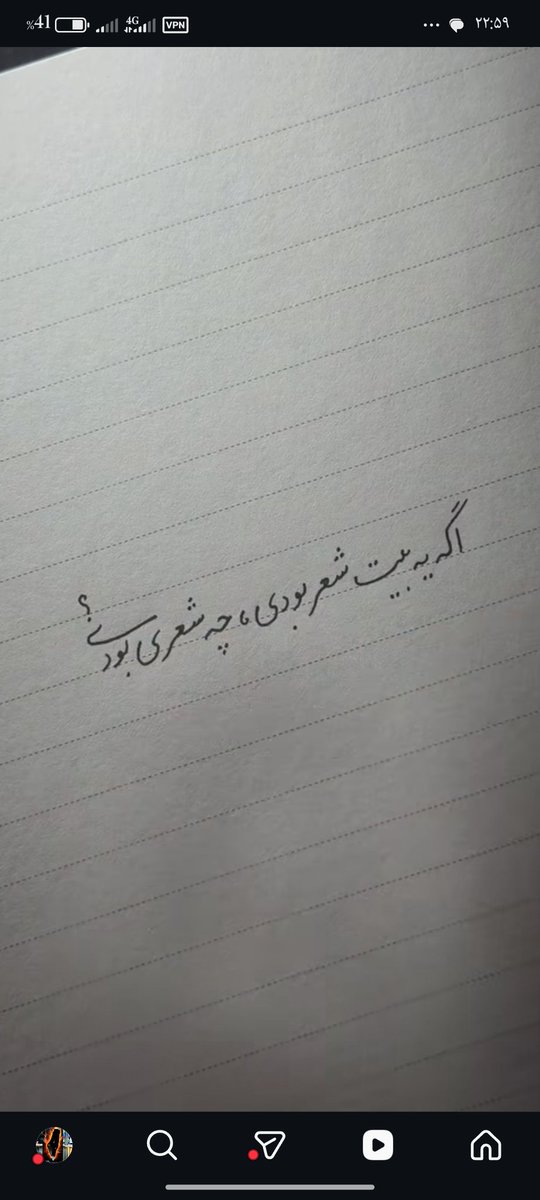 %41 4G VPN ... ۲۲:۵۹
اگه یه بیت شعر بودی، چه شعری بودی؟